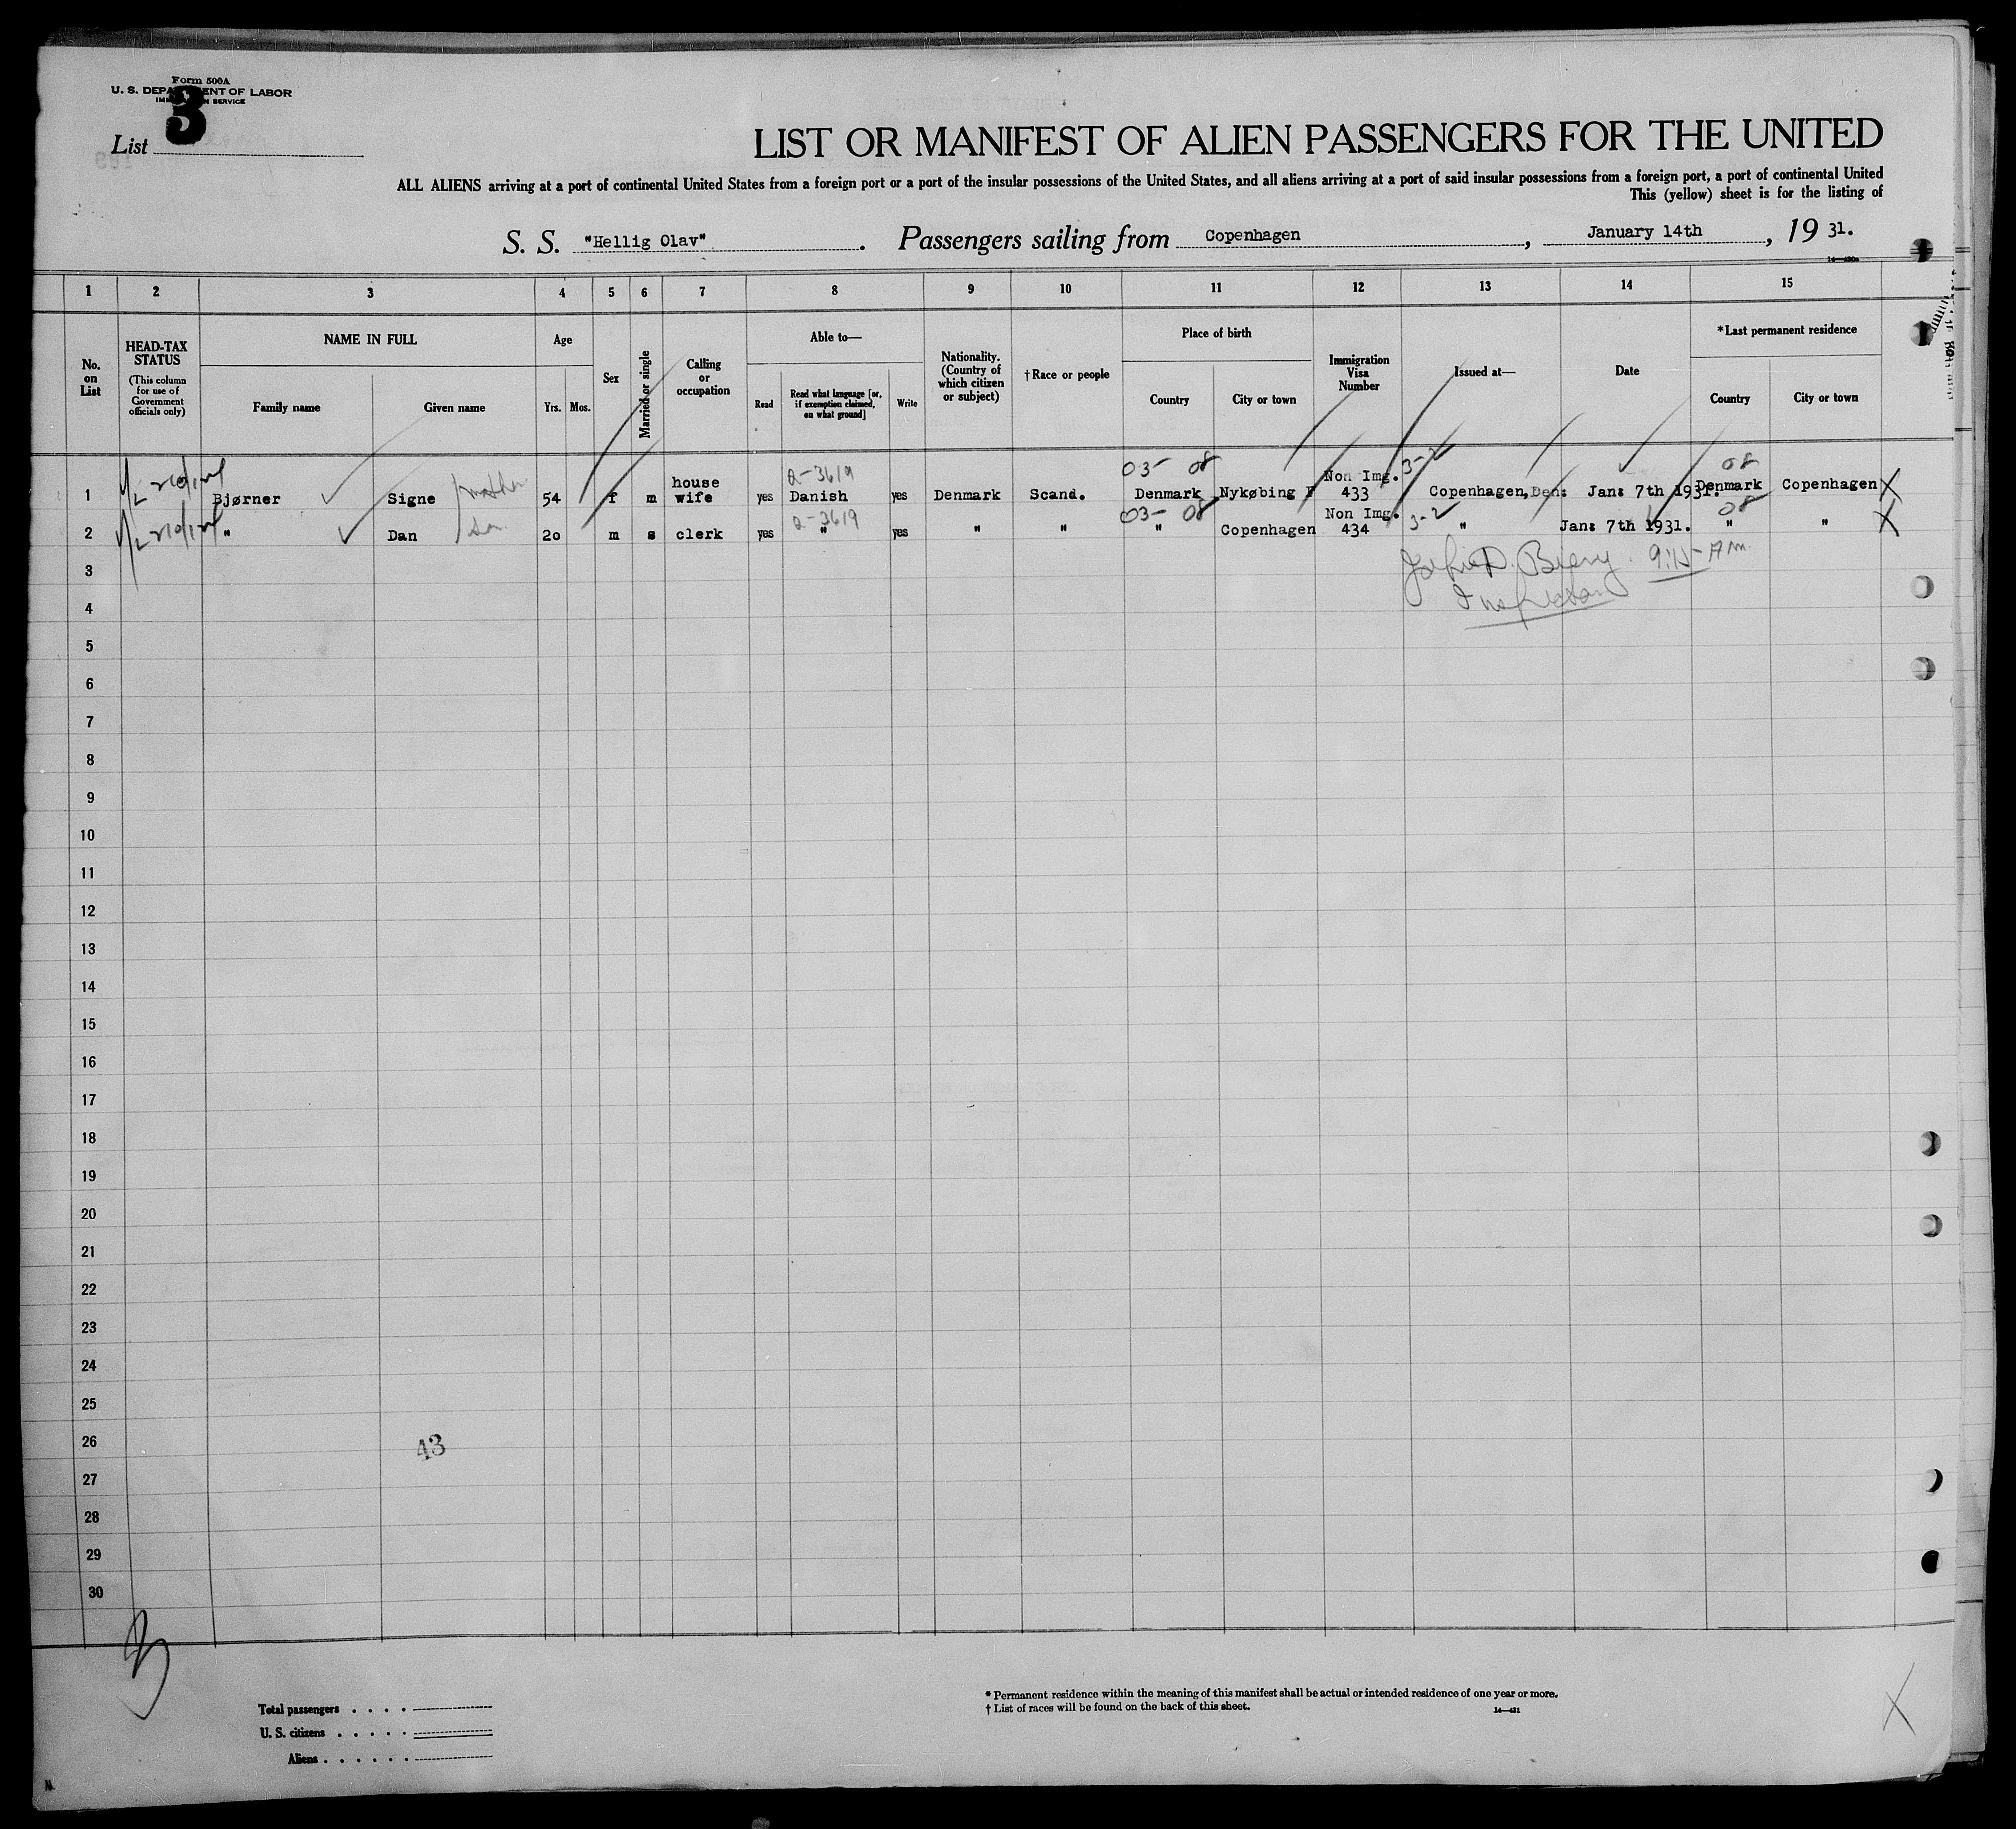 Form 500A
U. S. DEPARTMENT OF LABOR
IMMIGRATION SERVICE
3
List
LIST OR MANIFEST OF ALIEN PASSENGERS FOR THE UNITED
ALL ALIENS arriving at a port of continental United States from a foreign port or a port of the insular possessions of the United States, and all aliens arriving at a port of said insular possessions from a foreign port, a port of continental United
This (yellow) sheet is for the listing of
S. S. "Hellig Olav". Passengers sailing from Copenhagen, January 14th, 19 31.
1 2 3 4 5 6 7 8 9 10 11 12 13 14 15
No. on List
HEAD-TAX STATUS
(This column for use of Government officials only)
NAME IN FULL
Family name Given name
Age
Yrs. Mos.
Sex
Married or single
Calling or occupation
Able to—
Read
Read what language [or, if exemption claimed, on what ground]
Write
Nationality. (Country of which citizen or subject)
†Race or people
Place of birth
Country City or town
Immigration Visa Number
Issued at—
Date
*Last permanent residence
Country City or town
2-3619 03- 08 3-2 08
1 Bjørner Signe mother 54 f m house wife yes Danish yes Denmark Scand. Denmark Nykøbing F Non Img. 433 Copenhagen, Den: Jan: 7th 1931. Denmark Copenhagen X
2-3619 03- 08 3-2 08
2 " Dan son 20 m s clerk yes " yes " " " Copenhagen Non Img. 434 " Jan: 7th 1931. " " X
9:15 AM.
Inspector
3
4
5
6
7
8
9
10
11
12
13
14
15
16
17
18
19
20
21
22
23
24
25
26
43
27
28
29
30
Total passengers
U. S. citizens
Aliens
* Permanent residence within the meaning of this manifest shall be actual or intended residence of one year or more.
† List of races will be found on the back of this sheet.
14—431
X